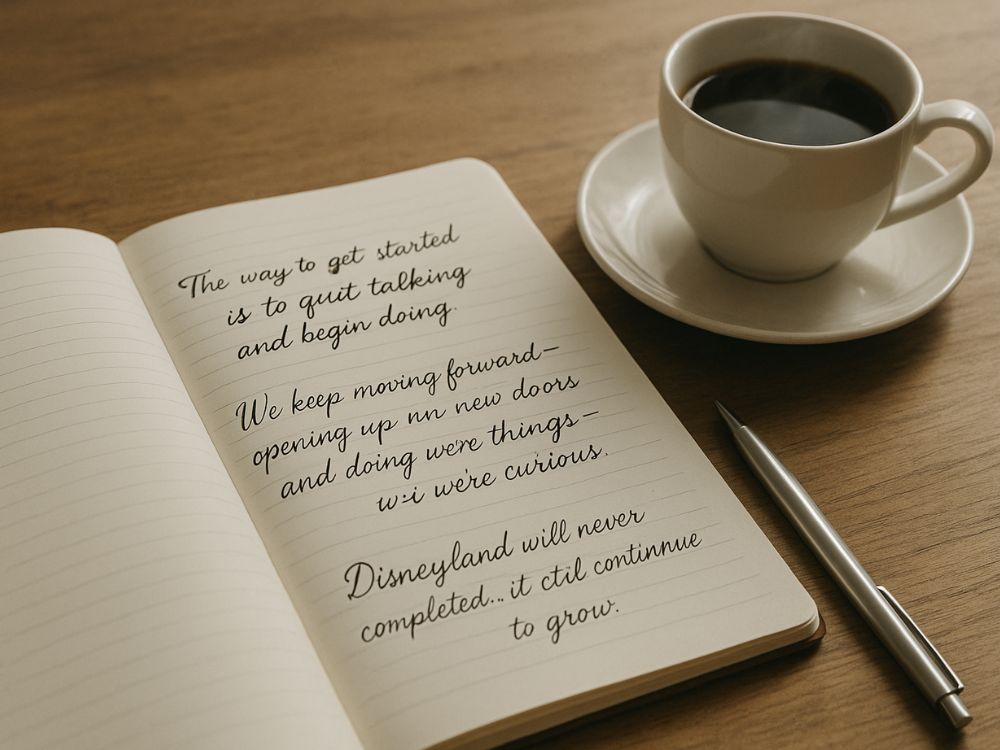 The way to get started
is to quit talking
and begin doing.
We keep moving forward—
opening up nn new doors
and doing we're things—
w:i we're curious.
Disneyland will never
completed... it ctil continnue
to grow.